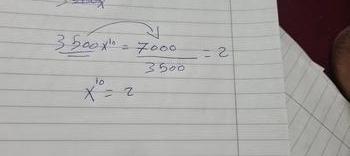 3500x¹⁰ = 7000/3500 = 2
x¹⁰ = 2